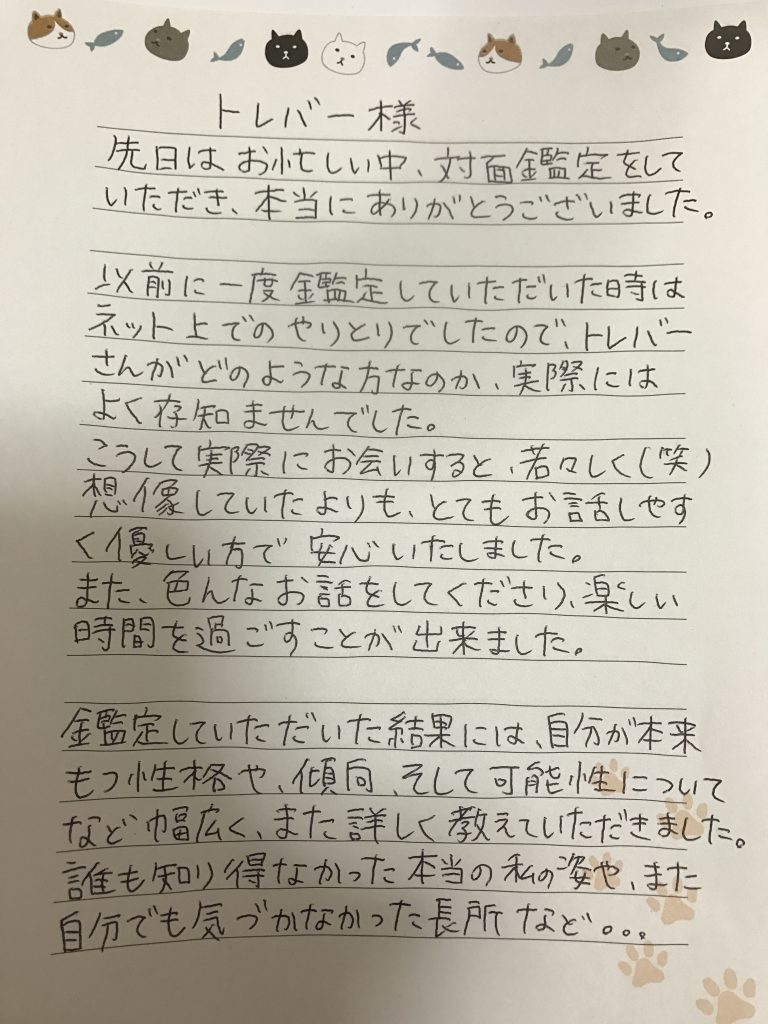 トレバー様
先日は お忙しい中、対面鑑定をして
いただき、本当に ありがとうございました。
以前に一度鑑定していただいた時は
ネット上でのやりとりでしたので、トレバー
さんがどのような方なのか、実際には
よく存知ませんでした。
こうして実際にお会いすると、若々しく(笑)
想像していたよりも、とてもお話しやす
く優しい方で 安心いたしました。
また、色んなお話をしてくださり、楽しい
時間を過ごすことが出来ました。
鑑定していただいた結果には、自分が本来
もつ性格や、傾向、そして可能性について
など幅広く、また詳しく教えていただきました。
誰も知り得なかった本当の私の姿や、また
自分でも気づかなかった長所など。。。